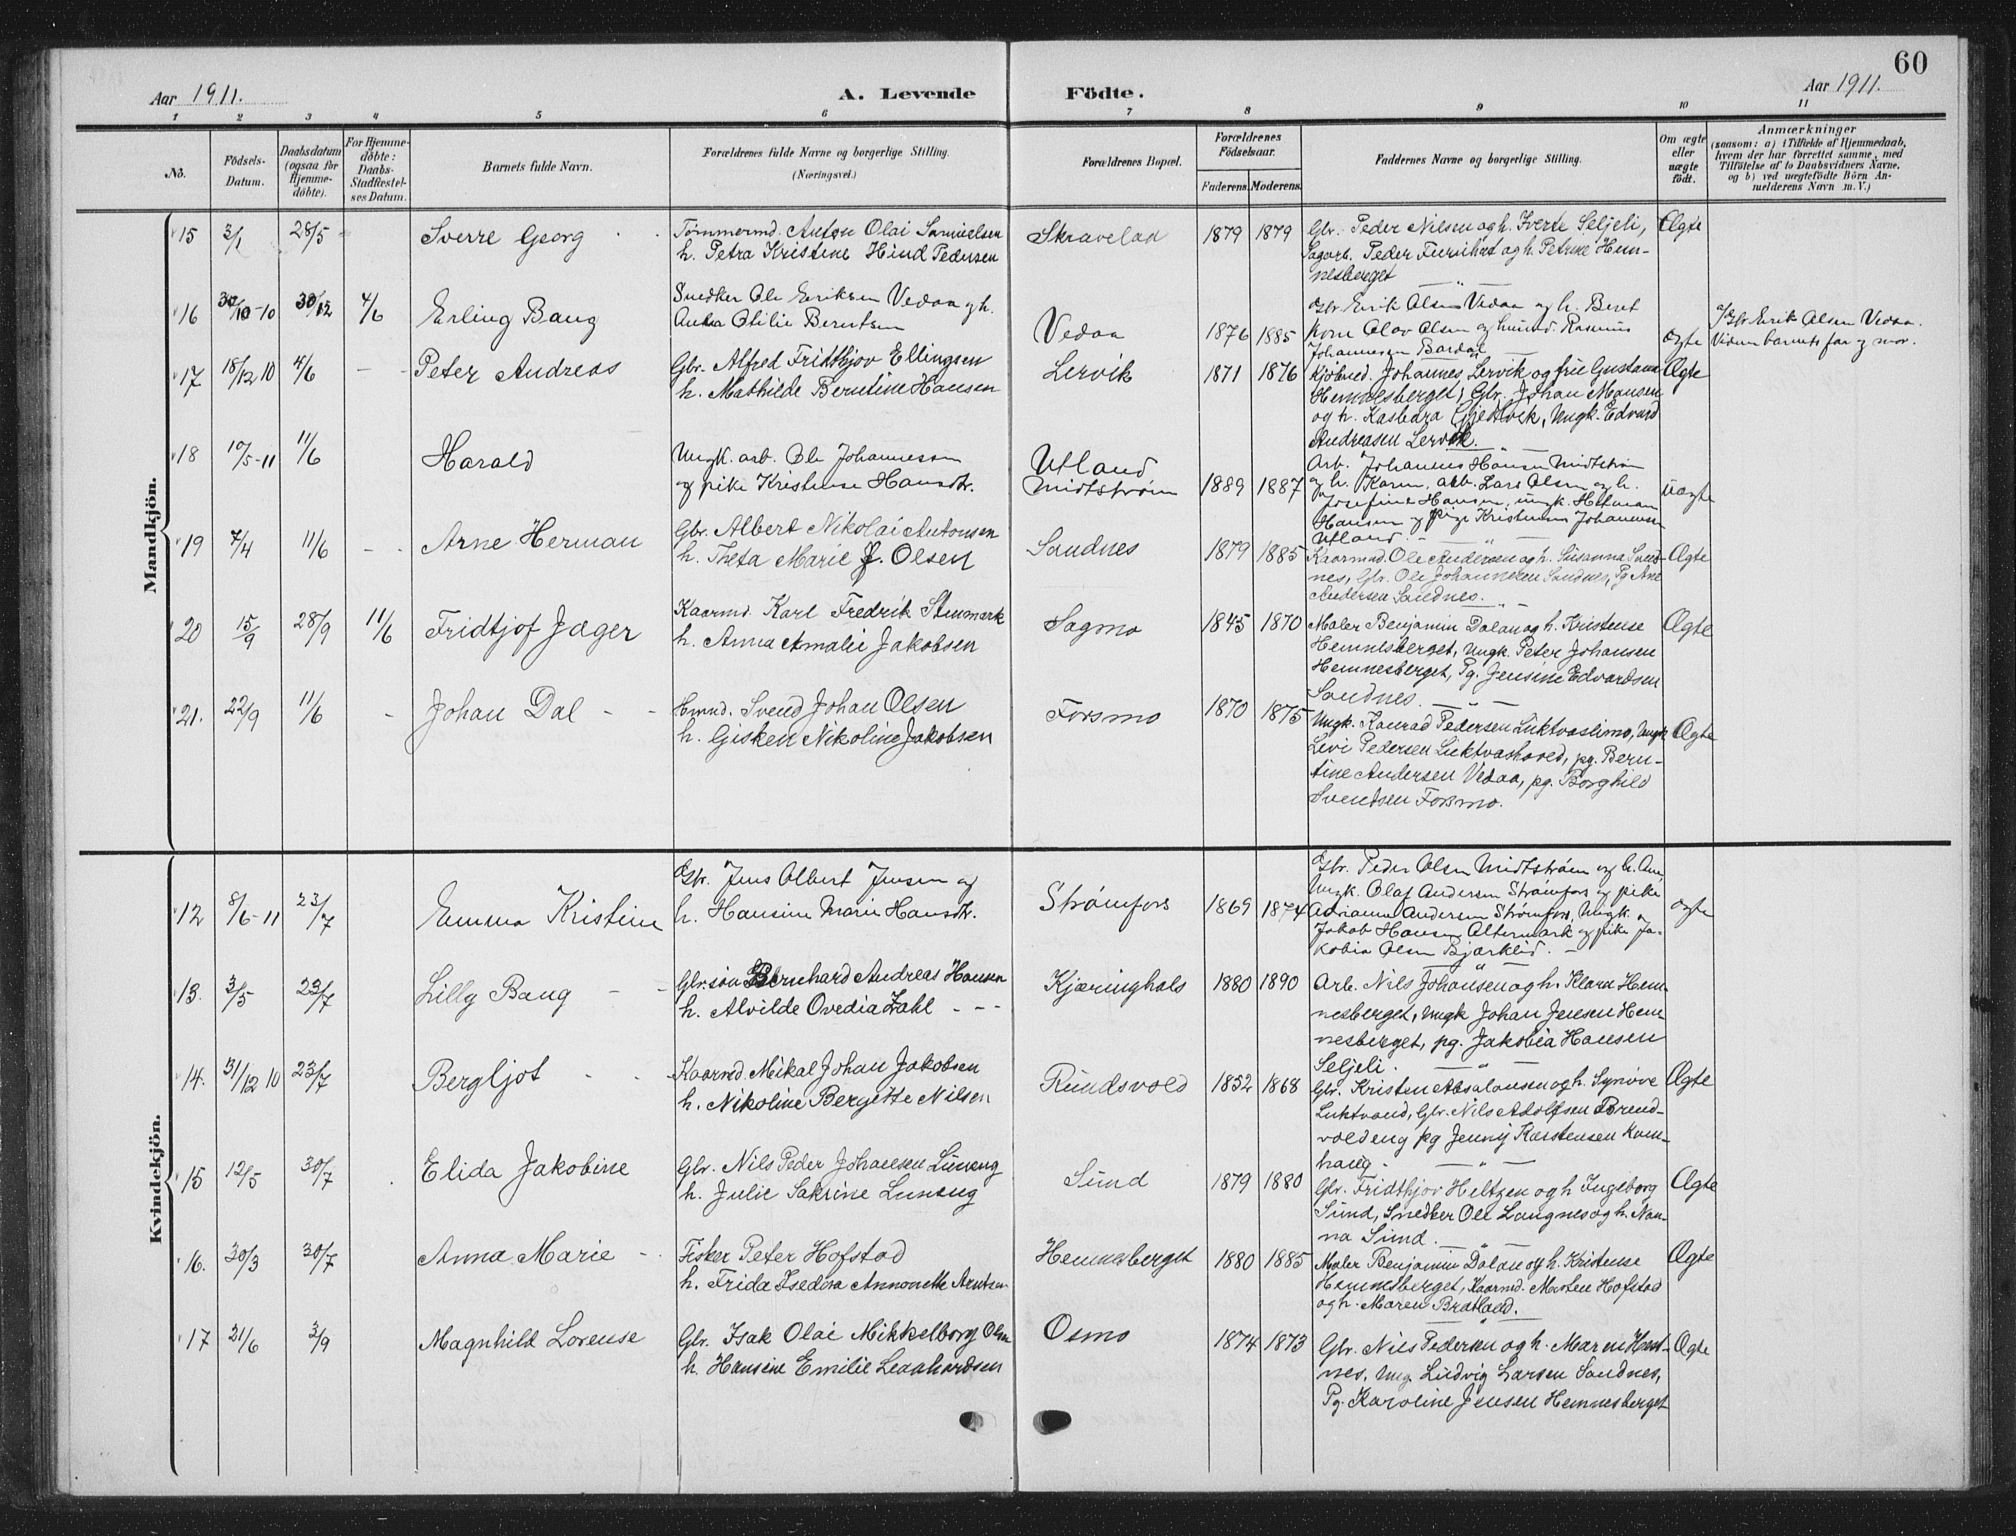 60
Aar 1911. A. Levende Födte. Aar 1911.
1 2 3 4 5 6 7 8 9 10 11
No. Födsels-Datum. Daabsdatum (ogsaa for Hjemmedöbte). For Hjemmedöbte: Daabs-Stadfæstelses Datum. Barnets fulde Navn. Forældrenes fulde Navne og borgerlige Stilling. (Næringsvei.) Forældrenes Bopæl. Forældrenes Födselsaar. Faderens. Moderens. Faddernes Navne og borgerlige Stilling. Om ægte eller uægte födt. Anmærkninger (saasom: a) i Tilfælde af Hjemmedaab, hvem der har forrettet samme, med Tilföielse af to Daabsvidners Navne, og b) ved uægtefödte Börn Anmelderens Navn m. V.)
Mandkjön.
15 3/1 28/5 Sverre Georg Tømmermd. Anton Olai Samuelsen Skravelaa 1879 1879 Gbr. Peder Nilsen og h. Iverte Seljeli, Ægte
h. Petra Kristine Hind Pedersen Sagarb. Peder Furuhat og h. Petrine Hem-
nesberget
16 30/10-10 30/12 4/6 Erling Bang Snedker Ole Eriksen Vedaa og h. Vedaa 1876 1885 Gbr. Erik Olsen Vedaa og h. Beret ægte Gbr. Erik Olsen Vedaa.
Anna Otilie Berntsen Korn. Olav Olsen og husmd. Rasmus Vidner barnets far og mor.
Johannesen Bardal
17 18/12 10 4/6 Peter Andreas Gbr. Alfred Fridthjov Ellingsen Lervik 1871 1876 Kjøbmd. Johannes Lervik og frue Gustava Ægte
h. Mathilde Berntine Hansen Hemnesberget, Gbr. Johan Hansen
og h. Kasbara, Ungk. Edvard
Andreasen Lervik.
18 10/5-11 11/6 Harald Ungk. arb. Ole Johannesen Utland 1889 1887 Arb. Johannes Hansen Midtstrøm uægte
og pike Kristense Hansdtr. Midtstrøm og h. Karen, arb. Lars Olsen og h.
Josefine Hansen, ungk. Herman
Hansen og pige Kristense Johannesen
Utland.
19 7/4 11/6 Arne Herman Gbr. Albert Nikolai Antonsen Sandnes 1879 1885 Kaarmd. Ole Andersen og h. Susanna Sand- Ægte
h. Theta Marie J. Olsen nes, Gbr. Ole Johannesen Sandnes, Pg Ane
Andersen Sandnes.
20 15/9 28/9 11/6 Fridtjof Jæger Kaarmd. Karl Fredrik Stenmark Sagmo 1845 1870 Maler Benjamin Dalan og h. Kristense Ægte
h. Anna Amalie Jakobsen Hemnesberget, Ungk. Peter Johansen
Hemnesberget, Pg. Jensine Edvardsen
Sandnes.
21. 22/9 11/6 Johan Dal Hmd. Svend Johan Olsen Forsmo 1870 1875 Ungk. Konrad Pedersen Luktvaslimo, Ungk Ægte
h. Gisken Nikoline Jakobsen Levi Pedersen Luktvashoved, pg. Bern-
tine Andersen Vedaa, pg. Borghild
Svendsen Forsmo.
Kvindekjön.
12 8/6-11 23/7 Emma Kristine Gbr. Jens Albert Jensen og Strømfors 1869 1874 Gbr. Peder Olsen Midtstrøm og h. An, ægte
h. Hansine Marie Hansdtr. Ungk. Olaf Andersen Strømfors og pike
Adrianna Andersen Strømfors, Ungk.
Jakob Hansen Altermark og pike Ja-
kobia Olsen Bjerklid.
13. 3/5 23/7 Lilly Bang Gbr.søn Bernhard Andreas Hansen Kjæringhals 1880 1890 Arb. Nils Johansen og h. Klara Hem-
h. Alvilde Ovedia Zahl nesberget, Ungk Johan Jensen Hem-
nesberget, pg. Jakobia Hansen
Seljeli.
14. 31/12 10 23/7 Bergljot Kaarmd. Mikal Johan Jakobsen Rundsvold 1852 1868 Gbr. Kristen Absalonsen og h. Synøve Ægte
h. Nikoline Bergette Nilsen Luktvand, Gbr. Nils Adolfsen Brend-
voldeng pg Jenny Karstensen Kom-
haug.
15 12/5 30/7 Elida Jakobine Gbr. Nils Peder Johansen Luneng Sund 1879 1880 Gbr. Fridthjov Heltzen og h Ingeborg Ægte
h. Julie Sakrine Luneng Sund, Snedker Ole Langnes og h. Nan-
na Sund.
16. 30/3 30/7 Anna Marie Fisker Peter Hofstad Hemnesberget 1880 1885 Maler Benjamin Dalan og h. Kristense Ægte
h. Frida Isedora Annonette Arntsen Hemnesberget, Kaarmd. Morten Hofstad
og h. Maren Bratland.
17 21/6 3/9 Magnhild Lorense Gbr. Isak Olai Mikkelborg Olsen Osmo 1874 1873 Gbr. Nils Pedersen og h. Maren Hest- Ægte
h. Hansine Emilie Leonhardsen nes, Ung. Ludvig Larsen Sandnes,
Pg. Karoline Jensen Hemnesberget